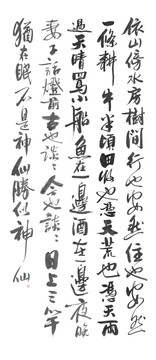 依山傍水房樹間行也安然住也安然
一條耕牛半頃田收也憑天荒也憑天雨
過天晴駕小船魚在一邊酒在一邊夜晚
妻子話燈前古也談々今也談々日上三竿
猶在眠不是神仙勝似神仙